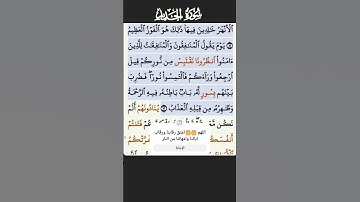 سورة الحديد
ٱلْأَنْهَٰرُ خَٰلِدِينَ فِيهَا ذَٰلِكَ هُوَ ٱلْفَوْزُ ٱلْعَظِيمُ
۝ يَوْمَ يَقُولُ ٱلْمُنَٰفِقُونَ وَٱلْمُنَٰفِقَٰتُ لِلَّذِينَ
ءَامَنُوا۟ ٱنظُرُونَا نَقْتَبِسْ مِن نُّورِكُمْ قِيلَ
ٱرْجِعُوا۟ وَرَآءَكُمْ فَٱلْتَمِسُوا۟ نُورًا فَضُرِبَ
بَيْنَهُم بِسُورٍ لَّهُۥ بَابٌۢ بَاطِنُهُۥ فِيهِ ٱلرَّحْمَةُ
وَظَٰهِرُهُۥ مِن قِبَلِهِ ٱلْعَذَابُ ۝ يُنَادُونَهُمْ أَلَمْ
نَكُن مَّعَ
كُمْ فَتَنتُمْ
اللهم اعتق رقابنا ورقاب
ابائنا وامهاتنا من النار
أَنفُسَكُ